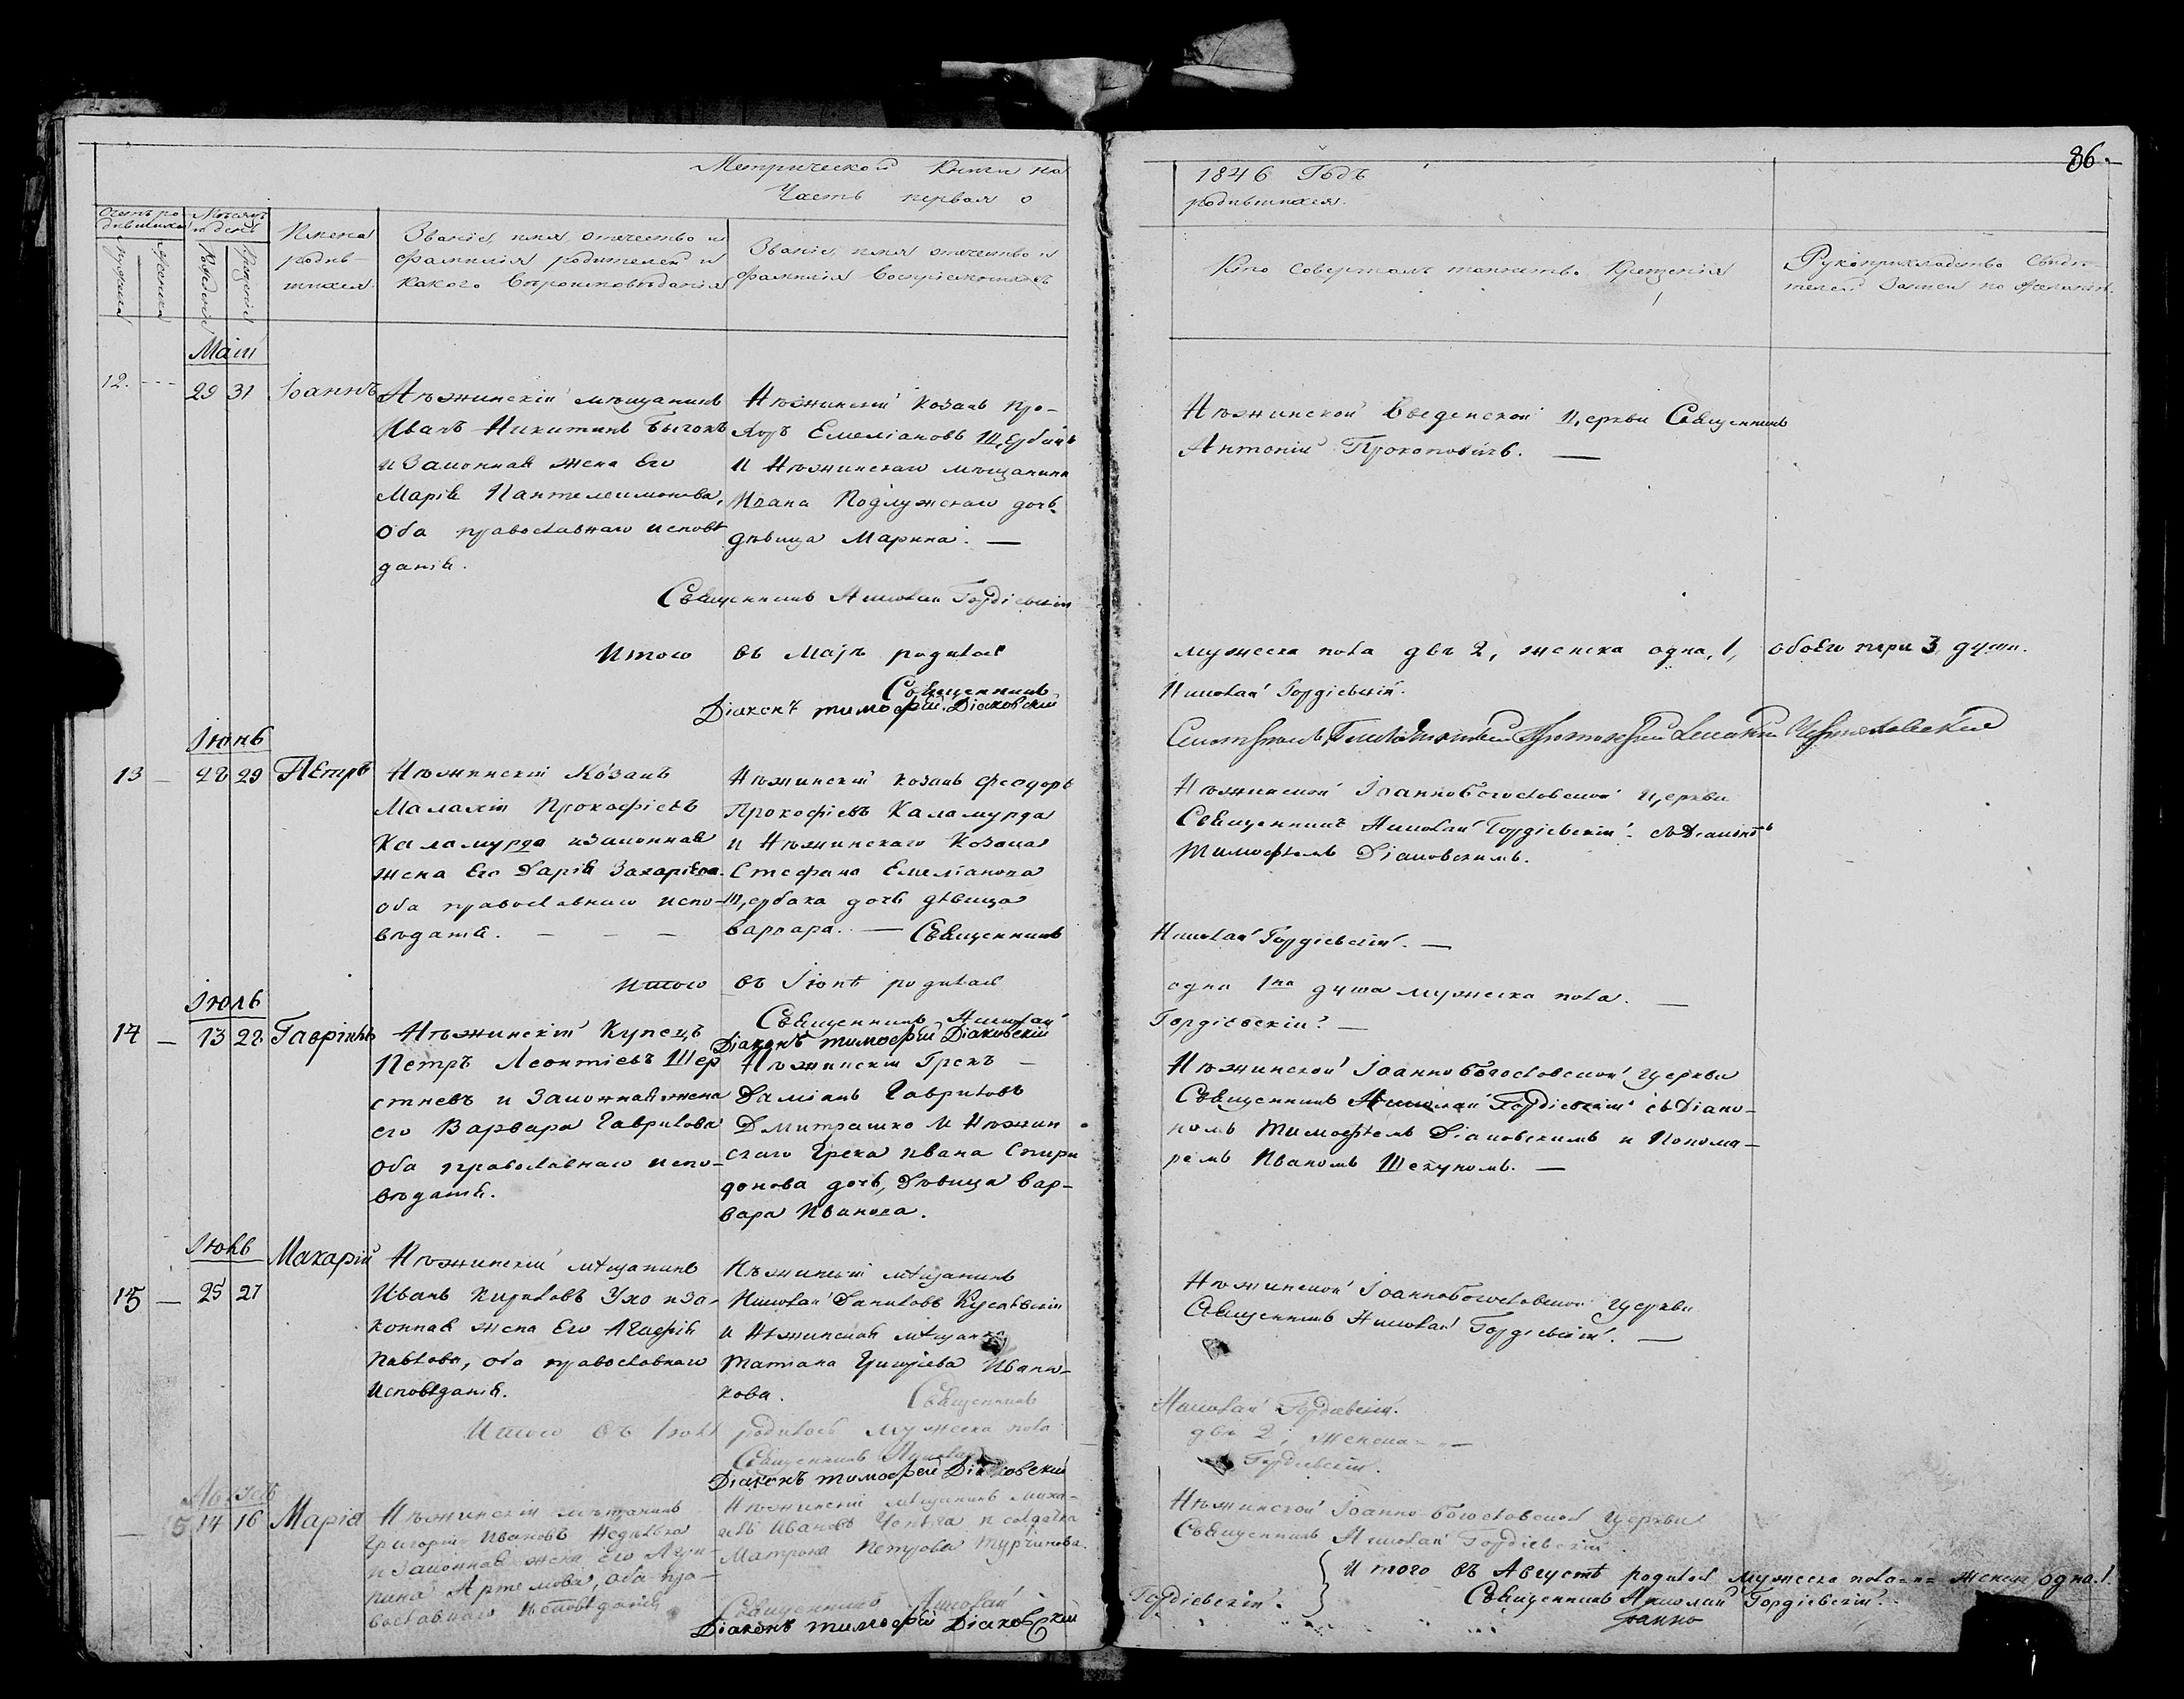 86.
Метрической Книги на
1846 Годъ
Часть первая о
родившихся.
Счетъ ро-
дившихся
мужеска
женска
Мѣсяцъ
и день
Рожденія
Крещенія
Имена
родив-
шихся
Званіе, имя, отечество и
фамилія родителей и
какого вѣроисповѣданія
Званіе, имя отечество и
фамилія воспріемниковъ
Кто совершалъ таинство Крещенія
Рукоприкладство свидѣ-
телей записи по желанію.
Маій
12. 29 31 Іоаннъ
Нѣжинскій мѣщанинъ
Иванъ Никитинъ Бычокъ
и законная жена Его
Марія Пантелеимонова,
оба православнаго исповѣ
данія.
Нѣжинскій козакъ Про-
хоръ Емеліановъ Щербакъ
и Нѣжинскаго мѣщанина
Ивана Подлужскаго дочь
дѣвица Марина. —
Священникъ Николай Гордіевскій
Нѣжинской Введенской церкви Священникъ
Антоній Прокоповичъ. —
Итого въ Маѣ родилось
мужеска пола двѣ 2, женска одна, 1, обоего три 3 души.
Священникъ
Николай Гордіевскій.
Діаконъ Тимофей Діаковскій
Іюнь
13 — 28 29 Петръ
Нѣжинскій Козакъ
Малахій Прокофіевъ
Каламурда и законная
жена Его Дарія Захаріева
оба православнаго испо-
вѣданія. — — —
Нѣжинскій козакъ Феодоръ
Прокофіевъ Каламурда
и Нѣжинскаго Козака
Стефана Емеліанова
Щербака дочь дѣвица
Варвара. — Священникъ
Нѣжинской Іоанно Богословской церкви
Священникъ Николай Гордіевскій съ Діакономъ
Тимофѣемъ Діаковскимъ.
Николай Гордіевскій. —
Итого въ Іюнѣ родилась
одна 1на душа мужеска пола. —
Священникъ Николай
Гордіевскій. —
Діаконъ Тимофей Діаковскій
Іюль
14 — 13 22 Гавріилъ
Нѣжинскій Купецъ
Петръ Леонтіевъ Шер
стневъ и Законная жена
его Варвара Гаврилова
Оба православнаго испо-
вѣданія.
Нѣжинскій Грекъ —
Даміанъ Гавриловъ
Дмитрашко и Нѣжин
скаго Грека Ивана Спири
донова дочь, Дѣвица Вар-
вара Иванова.
Нѣжинской Іоанно Богословской церкви
Священникъ Николай Гордіевскій съ Діако-
номъ Тимофѣемъ Діаковскимъ и Понома-
ремъ Иваномъ Шекуномъ. —
Іюль
15 — 25 27 Макарій
Нѣжинскій мѣщанинъ
Иванъ Кириловъ Ухо и за-
конная жена Его Агафія
Павлова, оба православнаго
исповѣданія.
Нѣжинскій мѣщанинъ
Николай Даниловъ
и Нѣжинская мѣщанка
Татіана Григріева Иваню-
кова.
Священникъ
Нѣжинской Іоанно Богословской церкви
Священникъ Николай Гордіевскій. —
Николай Гордіевскій.
Итого въ Іюлѣ родилось мужеска пола
двѣ 2, женска — „ —
Священникъ Николай
Гордіевскій.
Діаконъ Тимофей Діаковскій
Августъ
— 5 14 16 Марія
Нѣжинскій мѣщанинъ
Григорій Ивановъ
и законная жена Его Агри-
пина Артемова, оба пра-
вославнаго исповѣданія
Нѣжинскій мѣщанинъ Миха-
илъ Ивановъ и солдатка
Матрона Петрова Турчинова.
Священникъ Николай
Діаконъ Тимофей Діаковскій
Нѣжинской Іоанно-Богословской церкви
Священникъ Николай Гордіевскій.
Гордіевскій.
Итого въ Августѣ родилось мужеска пола -„- женска одна. 1.
Священникъ Николай Гордіевскій.
Іоанно